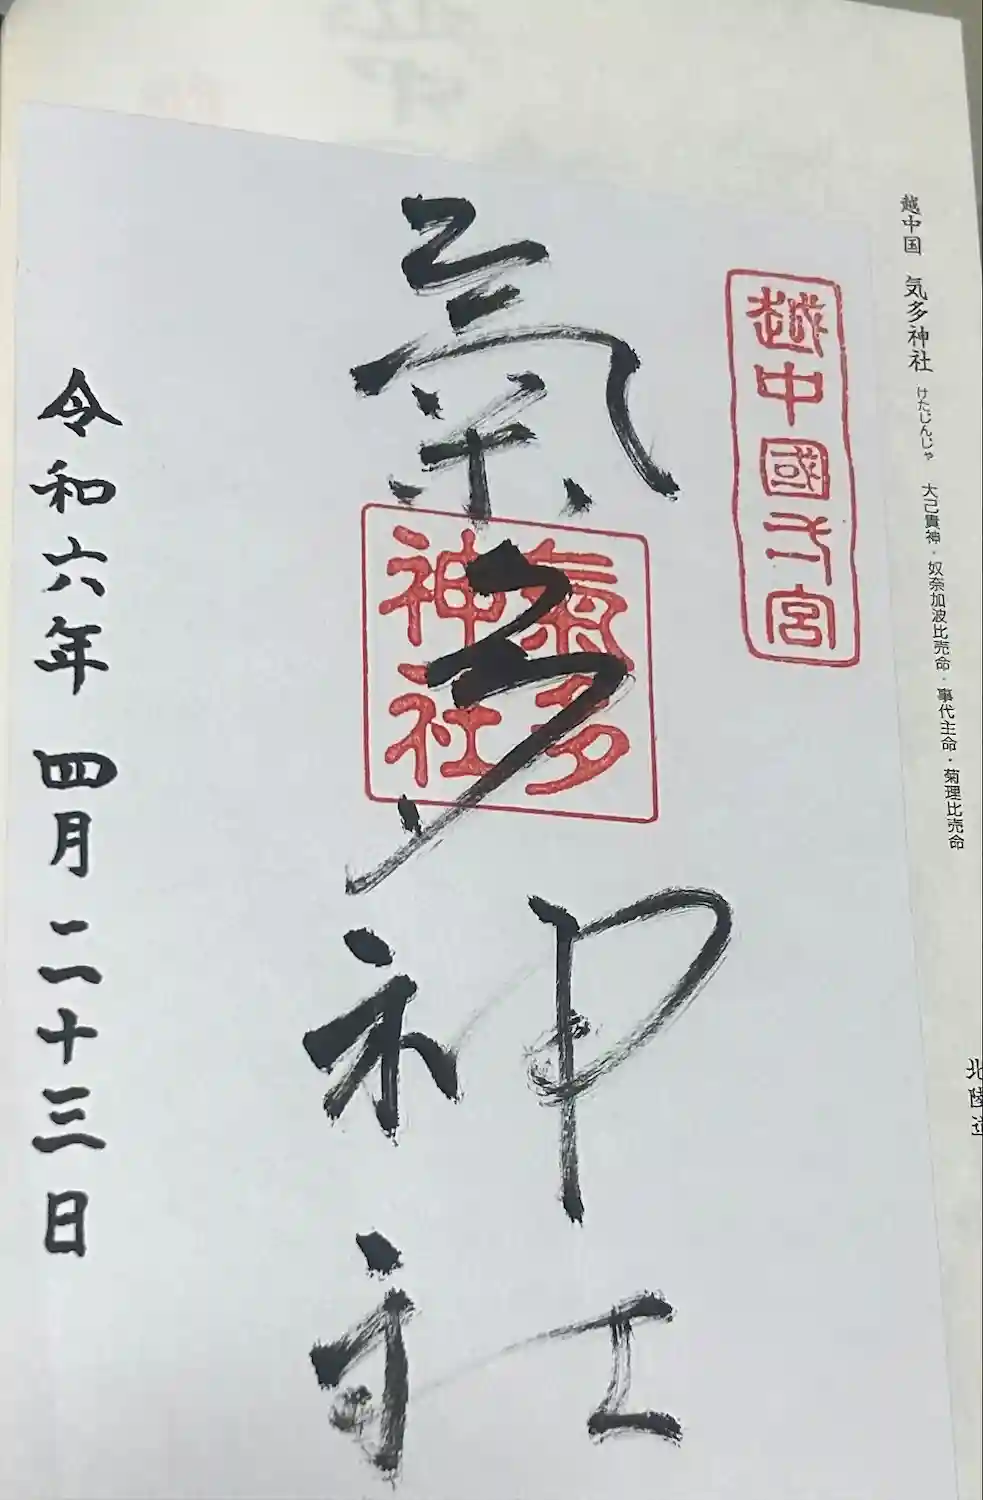 越中国 気多神社 けたじんじゃ 大己貴神・奴奈加波比売命・事代主命・菊理比売命
北陸道
越中國一宮
氣多神社
氣多
神社
令和六年 四月二十三日